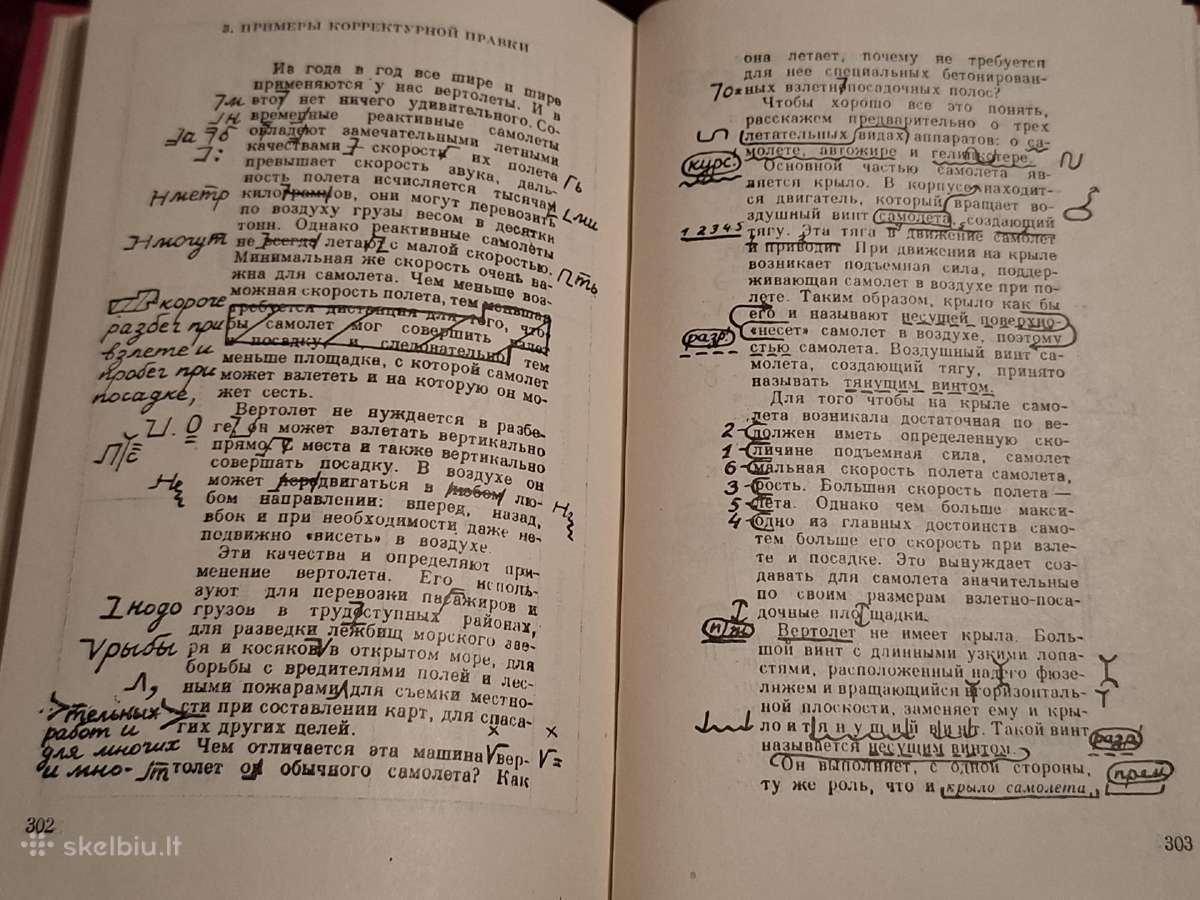 3. ПРИМЕРЫ КОРРЕКТУРНОЙ ПРАВКИ
Из года в год все шире и шире
применяются у нас вертолеты. И в
этом нет ничего удивительного. Со-
временные реактивные самолеты
обладают замечательными летными
качествами — скорость их полета
превышает скорость звука, даль-
ность полета исчисляется тысячам
они могут перевозить
по воздуху грузы весом в десятки
тонн. Однако реактивные самолеты
не всегда летают с малой скоростью.
Минимальная же скорость очень ва-
жна для самолета. Чем меньше воз-
можная скорость полета, тем меньшая
требуется дистанция для того, что-
бы самолет мог совершить взлет
и посадку и, следовательно, тем
меньше площадка, с которой самолет
может взлететь и на которую он мо-
жет сесть.
Вертолет не нуждается в разбе-
ге он может взлетать вертикально
прямо с места и также вертикально
совершать посадку. В воздухе он
может передвигаться в любом лю-
бом направлении: вперед, назад,
вбок и при необходимости даже не-
подвижно «висеть» в воздухе.
Эти качества и определяют при-
менение вертолета. Его исполь-
зуют для перевозки пасажиров и
грузов в трудоступных районах,
для разведки лежбищ морского зве-
ря и косяков в открытом море, для
борьбы с вредителями полей и лес-
ными пожарами для съемки местно-
сти при составлении карт, для спаса-
гих других целей.
Чем отличается эта машина вер-
толет от обычного самолета? Как
м
н
а б
:
метр
могут
короче
разбег при
взлете и
пробег при
посадке,
ь
ми
ть
Не
надо
рыбы
тельных
работ и
для многих
и мно-
т
302
она летает, почему не требуется
для нее специальных бетонирован-
ных взлетн посадочных полос?
Чтобы хорошо все это понять,
расскажем предварительно о трех
летательных видах аппаратов: о са-
молете, автожире и геликоптере.
Основной частью самолета яв-
ляется крыло. В корпусе находит-
ся двигатель, который вращает во-
здушный винт самолета, создающий
тягу. Эта тяга в движение самолет
и приводит При движении на крыле
возникает подъемная сила, поддер-
живающая самолет в воздухе при по-
лете. Таким образом, крыло как бы
его и называют несущей поверхно-
«несет» самолет в воздухе, поэтому
стью самолета. Воздушный винт са-
молета, создающий тягу, принято
называть тянущим винтом.
Для того чтобы на крыле само-
лета возникала достаточная по ве-
должен иметь определенную ско-
личине подъемная сила, самолет
мальная скорость полета самолета,
рость. Большая скорость полета —
лета. Однако чем больше макси-
одно из главных достоинств само-
тем больше его скорость при взле-
те и посадке. Это вынуждает соз-
давать для самолета значительные
по своим размерам взлетно-поса-
дочные площадки.
Вертолет не имеет крыла. Боль-
шой винт с длинными узкими лопа-
стями, расположенный над его фюзе-
ляжем и вращающийся в горизонталь-
ной плоскости, заменяет ему и кры-
ло и тянущий винт. Такой винт
называется несущим винтом.
Он выполняет, с одной стороны,
ту же роль, что и крыло самолета,
курс.
1 2 3 4 5
разр.
2
1
6
3
5
4
п/ж
разр.
прям
303
skelbiu.lt